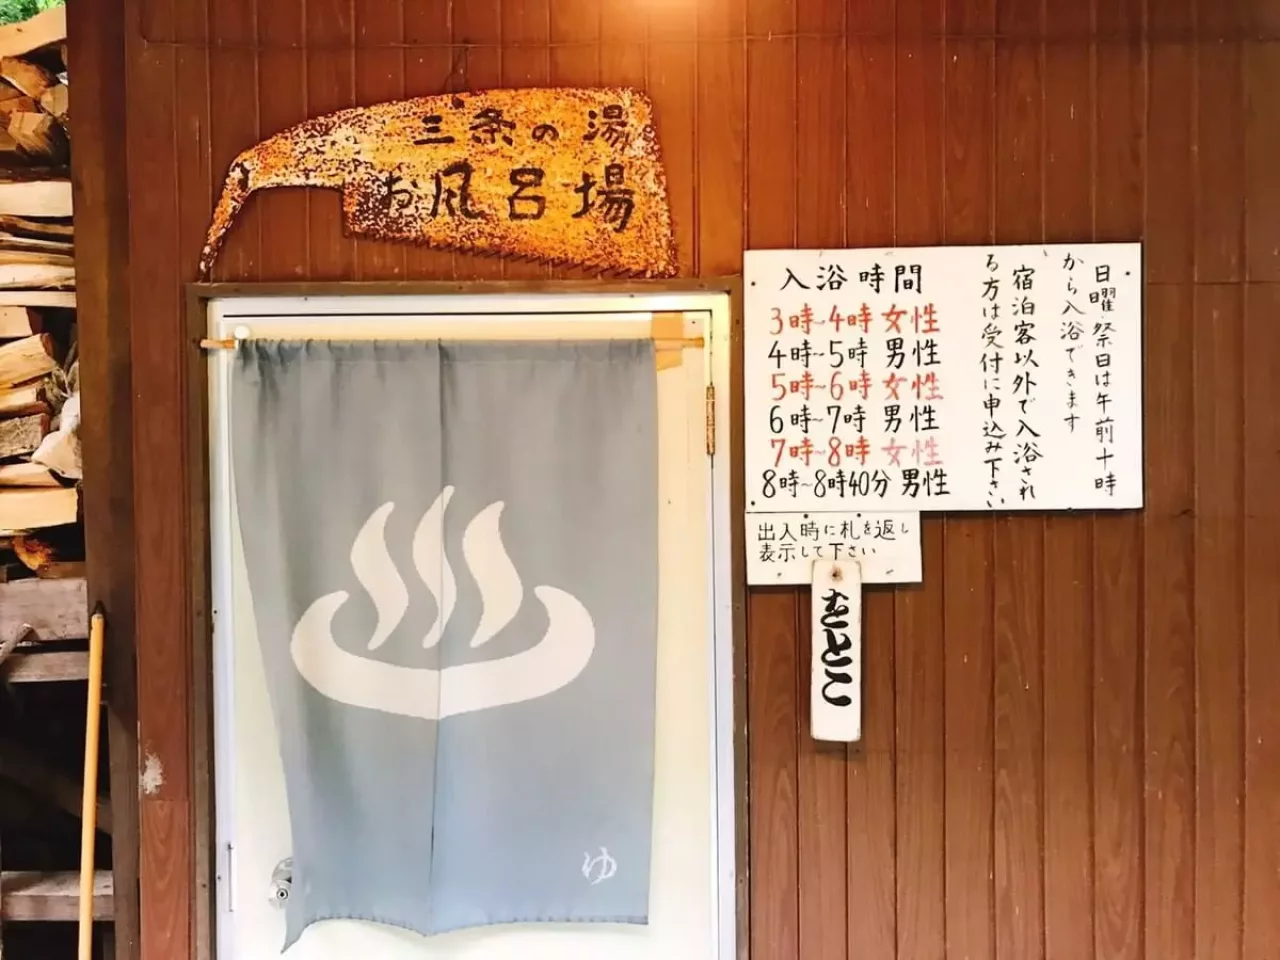 三条の湯
お風呂場
入浴時間
3時~4時 女性
4時~5時 男性
5時~6時 女性
6時~7時 男性
7時~8時 女性
8時~8時40分 男性
日曜・祭日は午前十時
から入浴できます
宿泊客以外で入浴され
る方は受付に申込み下さい
出入時に札を返し
表示して下さい
おとこ
ゆ